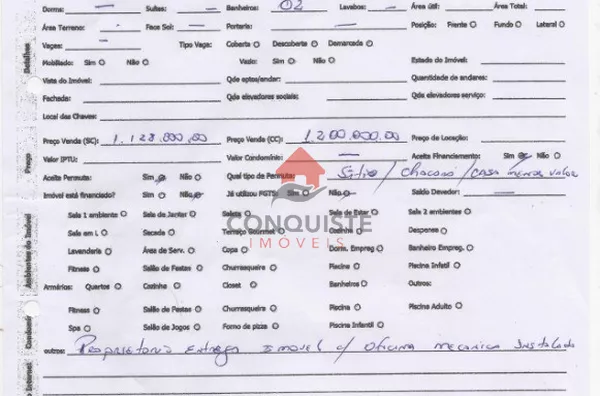 Dorms: — Suítes: — Banheiros: 02 Lavabos: — Área útil: Área Total:
Área Terreno: — Face Sol: — Portaria: — Posição: Frente O Fundo O Lateral O
Vagas: — Tipo Vaga: Coberta O Descoberta O Demarcada O
Detalhes
Mobiliado: Sim O Não O Vazio: Sim O Não O Estado do Imóvel:
Vista do Imóvel: Qde aptos/andar: Quantidade de andares:
Fachada: Qde elevadores sociais: Qde elevadores serviço:
Local das Chaves:
Preço
Preço Venda (SC): 1.128.000,00 Preço Venda (CC): 1200.000,00 Preço de Locação:
Valor IPTU: Valor Condomínio: — Aceita Financiamento: Sim O Não O
Aceita Permuta: Sim O Não O Qual tipo de Permuta: Sítio / Chacara / casa menor valor
Imóvel está financiado? Sim O Não O Já utilizou FGTS: Sim O Não O Saldo Devedor: —
Ambientes do Imóvel
Sala 1 ambiente O Sala de Jantar O Saleta O Sala de Estar O Sala 2 ambientes O
Sala em L O Sacada O Terraço Gourmet O Cozinha O Despensa O
CONQUISTE
IMÓVEIS
Lavanderia O Área de Serv. O Copa O Dorm. Empreg O Banheiro Empreg. O
Fitness O Salão de Festas O Churrasqueira O Piscina O Piscina Infatil O
Armários: Quartos O Cozinha O Closet O Banheiros O Outros:
Fitness O Salão de Festas O Churrasqueira O Piscina O Piscina Adulto O
Spa O Salão de Jogos O Forno de pizza O Piscina Infantil O
outros: Proprietario Entrega Imovel c/ Oficina mecanica Instalada